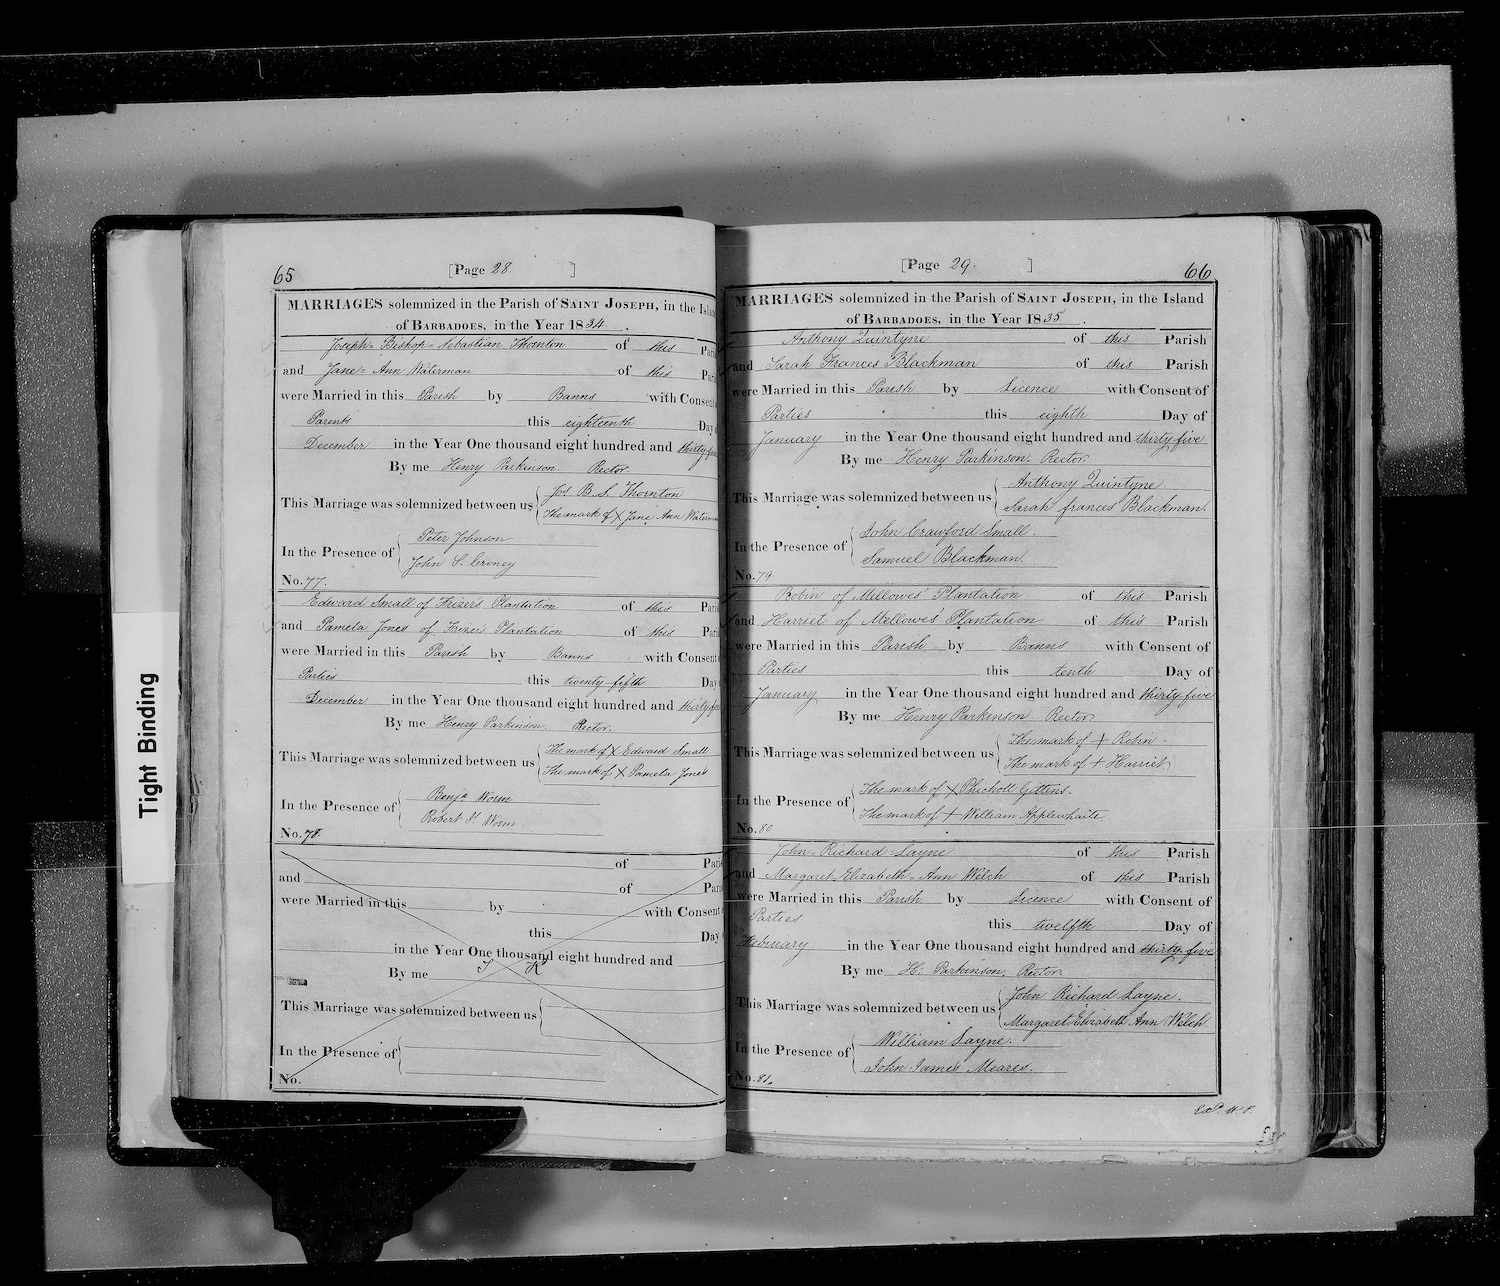 Tight Binding
65
[Page 28. ]
MARRIAGES solemnized in the Parish of SAINT JOSEPH, in the Island
of BARBADOES, in the Year 1834.
Joseph-Bishop-Sebastian Thornton of this Pari
and Jane-Ann Waterman of this Pa
were Married in this Parish by Banns with Consent
Parents this eighteenth Day
December in the Year One thousand eight hundred and thirty-four
By me Henry Parkinson Rector
This Marriage was solemnized between us
Jos B. S. Thornton
The mark of X Jane Ann Waterman
In the Presence of
Peter Johnson
John S.
No. 77.
Edward Small of Frizers Plantation of this Pari
and Pamela Jones of Frizers Plantation of this Pari
were Married in this Parish by Banns with Consent
Parties this twenty-fifth Day
December in the Year One thousand eight hundred and thirty-four
By me Henry Parkinson Rector.
This Marriage was solemnized between us
The mark of X Edward Small
The mark of X Pamela Jones
In the Presence of
Benja Worm
Robert Worm
No. 78.
of Pari
and of Pari
were Married in this by with Consent
this Day
in the Year One thousand eight hundred and
By me
This Marriage was solemnized between us
In the Presence of
No.
[Page 29. ]
66
MARRIAGES solemnized in the Parish of SAINT JOSEPH, in the Island
of BARBADOES, in the Year 1835.
Anthony Quintyne of this Parish
and Sarah Frances Blackman of this Parish
were Married in this Parish by Licence with Consent of
Parties this eighth Day of
January in the Year One thousand eight hundred and thirty-five
By me Henry Parkinson. Rector
This Marriage was solemnized between us
Anthony Quintyne
Sarah frances Blackman.
In the Presence of
John Crawford Small.
Samuel Blackman
No. 79
Robin of Mellowes' Plantation of this Parish
and Harriet of Mellowes' Plantation of this Parish
were Married in this Parish by Banns with Consent of
Parties this tenth Day of
January in the Year One thousand eight hundred and thirty-five
By me Henry Parkinson Rector
This Marriage was solemnized between us
The mark of + Robin
The mark of + Harriet
In the Presence of
The mark of X Gittens.
The mark of + William Applewhaite
No. 80
John-Richard Layne of this Parish
and Margaret-Elizabeth-Ann Welch of this Parish
were Married in this Parish by Licence with Consent of
Parties this twelfth Day of
February in the Year One thousand eight hundred and thirty-five
By me H. Parkinson, Rector
This Marriage was solemnized between us
John Richard Layne.
Margaret Elizabeth Ann Welch
In the Presence of
William Layne.
John James Meares.
No. 81.